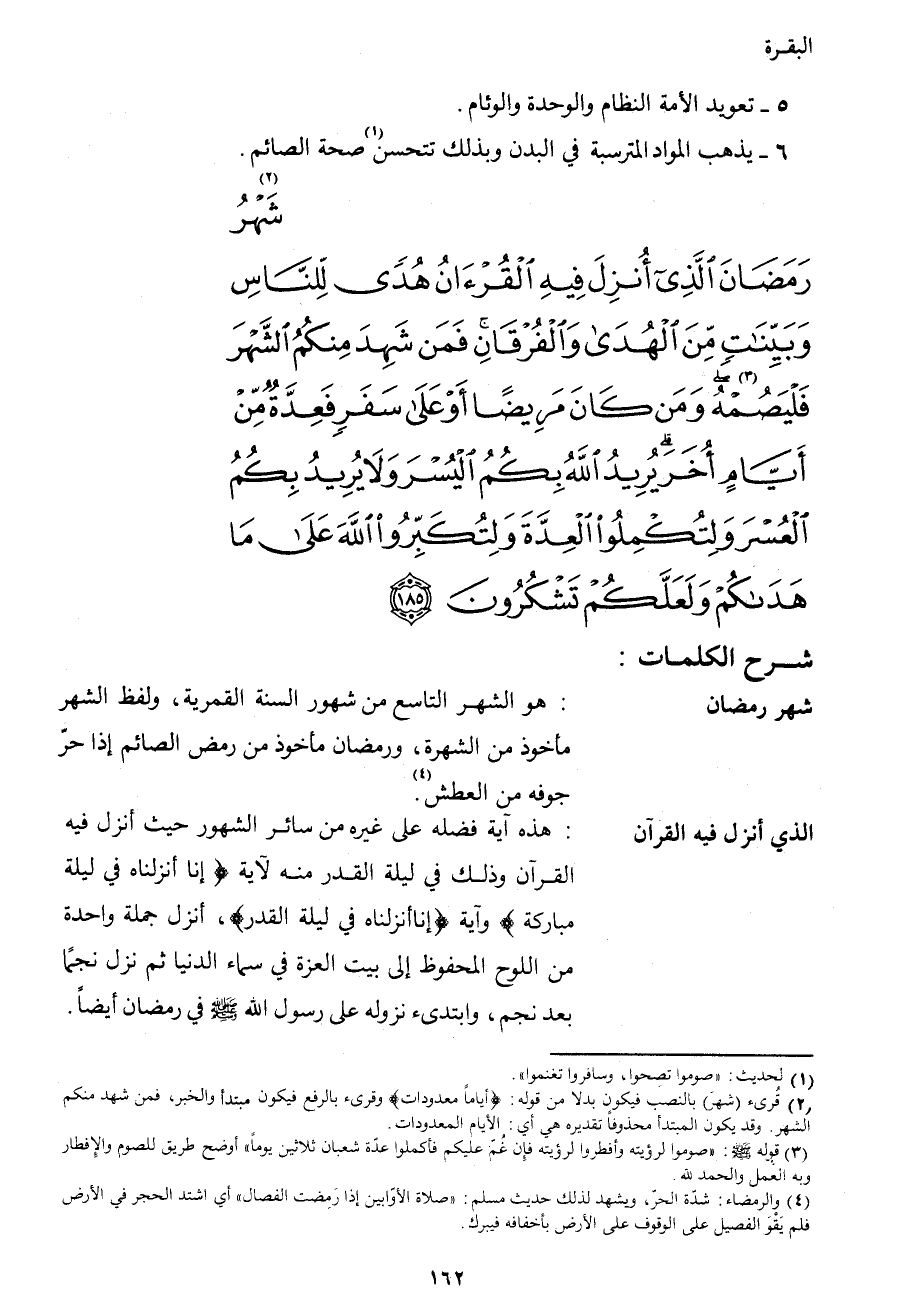 البقـرة
٥ ـ تعويد الأمة النظام والوحدة والوئام .
٦ ـ يذهب المواد المترسبة في البدن وبذلك تتحسن(١) صحة الصائم .
شَهْرُ(٢)
رَمَضَانَ ٱلَّذِىٓ أُنزِلَ فِيهِ ٱلْقُرْءَانُ هُدًى لِّلنَّاسِ
وَبَيِّنَٰتٍ مِّنَ ٱلْهُدَىٰ وَٱلْفُرْقَانِۚ فَمَن شَهِدَ مِنكُمُ ٱلشَّهْرَ
فَلْيَصُمْهُۖ(٣) وَمَن كَانَ مَرِيضًا أَوْ عَلَىٰ سَفَرٍ فَعِدَّةٌ مِّنْ
أَيَّامٍ أُخَرَۗ يُرِيدُ ٱللَّهُ بِكُمُ ٱلْيُسْرَ وَلَا يُرِيدُ بِكُمُ
ٱلْعُسْرَ وَلِتُكْمِلُوا۟ ٱلْعِدَّةَ وَلِتُكَبِّرُوا۟ ٱللَّهَ عَلَىٰ مَا
هَدَىٰكُمْ وَلَعَلَّكُمْ تَشْكُرُونَ ١٨٥
شـــرح الكلمـات :
شهر رمضان : هو الشهـر التاسع من شهور السنة القمرية، ولفظ الشهر
مأخوذ من الشهرة، ورمضان مأخوذ من رمض الصائم إذا حرّ
جوفه من العطش(٤).
الذي أنزل فيه القرآن : هذه آية فضله على غيره من سائـر الشهور حيث أنزل فيه
القـرآن وذلـك في ليلة القـدر منـه لآية ﴿ إنا أنزلناه في ليلة
مباركة ﴾ وآية ﴿إناأنزلناه في ليلة القدر﴾، أنزل جملة واحدة
من اللوح المحفوظ إلى بيت العزة في سماء الدنيا ثم نزل نجمًا
بعد نجم، وابتدىء نزوله على رسول الله ﷺ في رمضان أيضاً.
(١) لحديث: «صوموا تصحوا، وسافروا تغنموا».
(٢) قُرىء (شهرَ) بالنصب فيكون بدلا من قوله: ﴿أياماً معدودات﴾ وقرىء بالرفع فيكون مبتدأ والخبر، فمن شهد منكم
الشهر. وقد يكون المبتدأ محذوفاً تقديره هي أي: الأيام المعدودات.
(٣) قوله ﷺ: «صوموا لرؤيته وأفطروا لرؤيته فإن غُمّ عليكم فأكملوا عدّة شعبان ثلاثين يوماً» أوضح طريق للصوم والإفطار
وبه العمل والحمد لله.
(٤) والرمضاء: شدّة الحرّ، ويشهد لذلك حديث مسلم: «صلاة الأوّابين إذا رَمِضت الفصال» أي اشتد الحجر في الأرض
فلم يَقْوَ الفصيل على الوقوف على الأرض بأخفافه فيبرك.
١٦٢